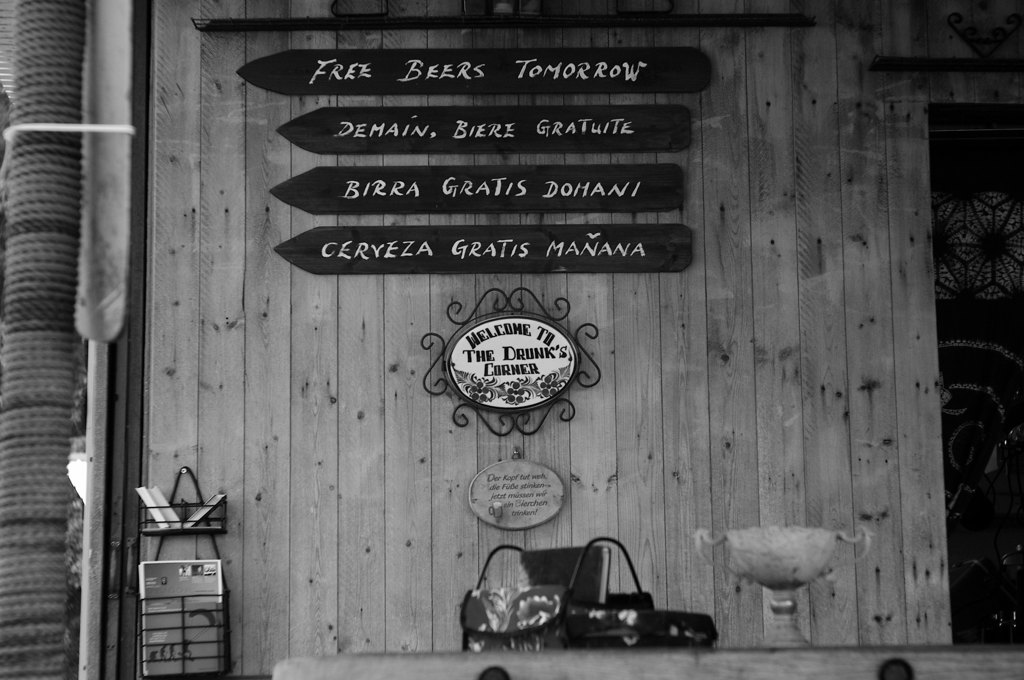 FREE BEERS TOMORROW
DEMAIN, BIERE GRATUITE
BIRRA GRATIS DOMANI
CERVEZA GRATIS MAÑANA
WELCOME TO
THE DRUNK'S
CORNER
Der Kopf tut weh,
die Füße stinken-
jetzt müssen wir
ein Bierchen
trinken!